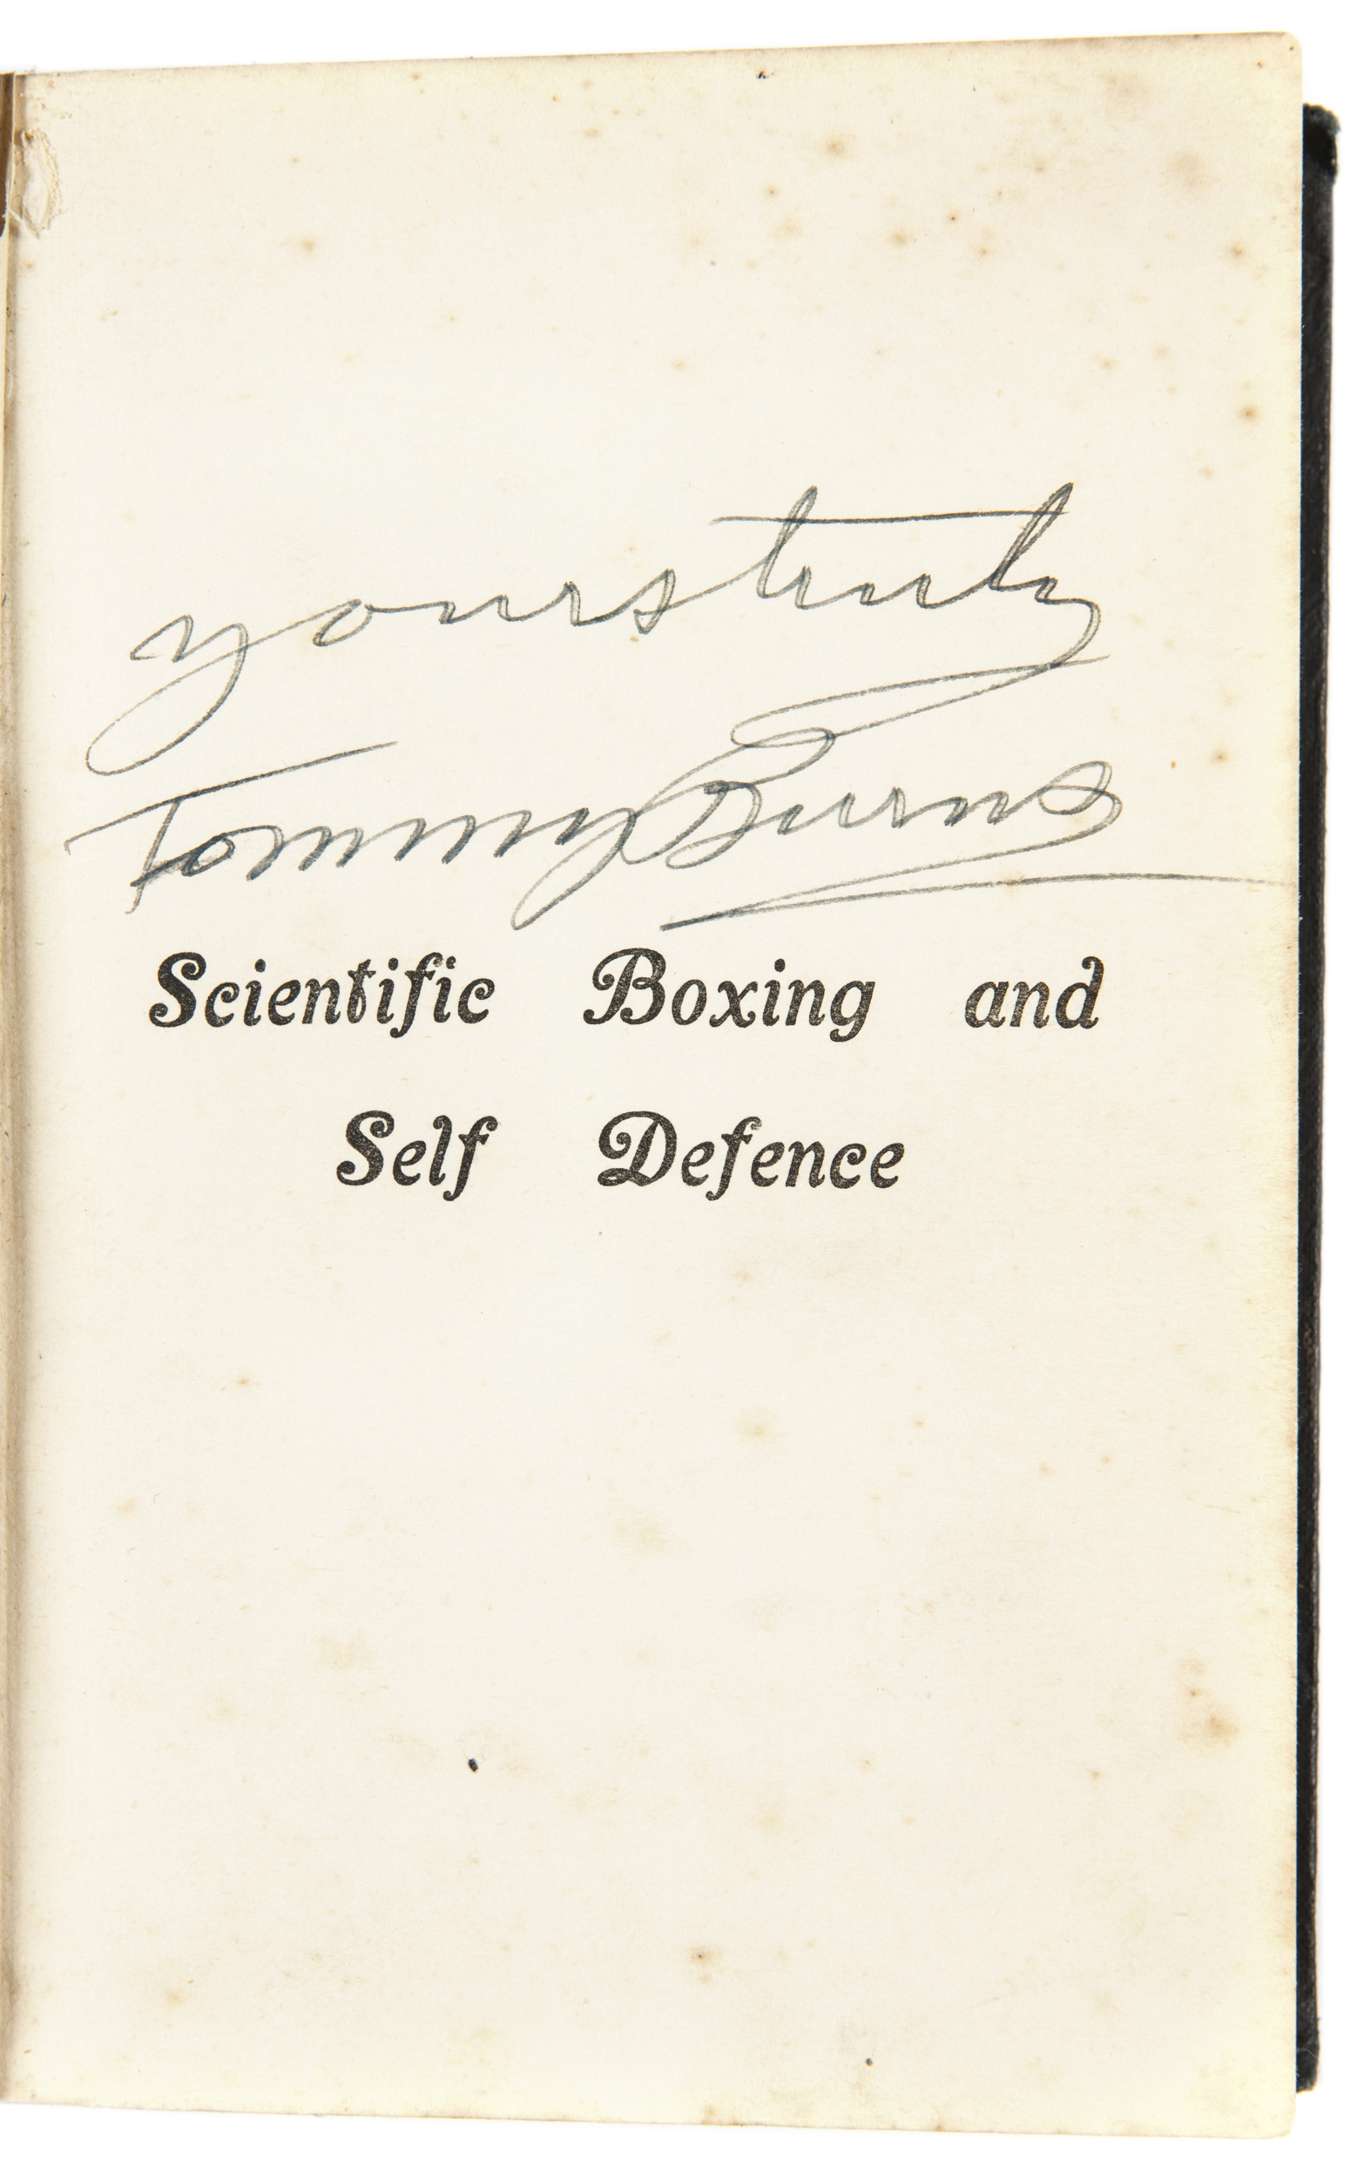 yours truly
Tommy Burns
Scientific Boxing and
Self Defence